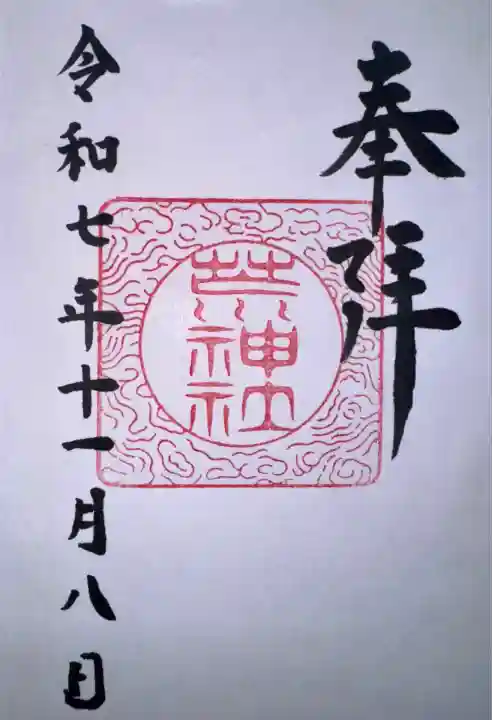 奉拝
荒神社
令和七年十一月八日